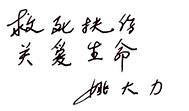 救死扶伤
关爱生命
姚大力